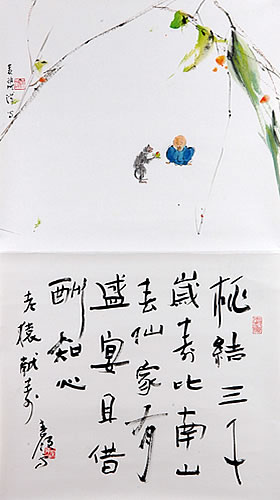 桃結三千
歲壽比南山
去仙家有
盛宴且借
酬知心
老猿獻壽